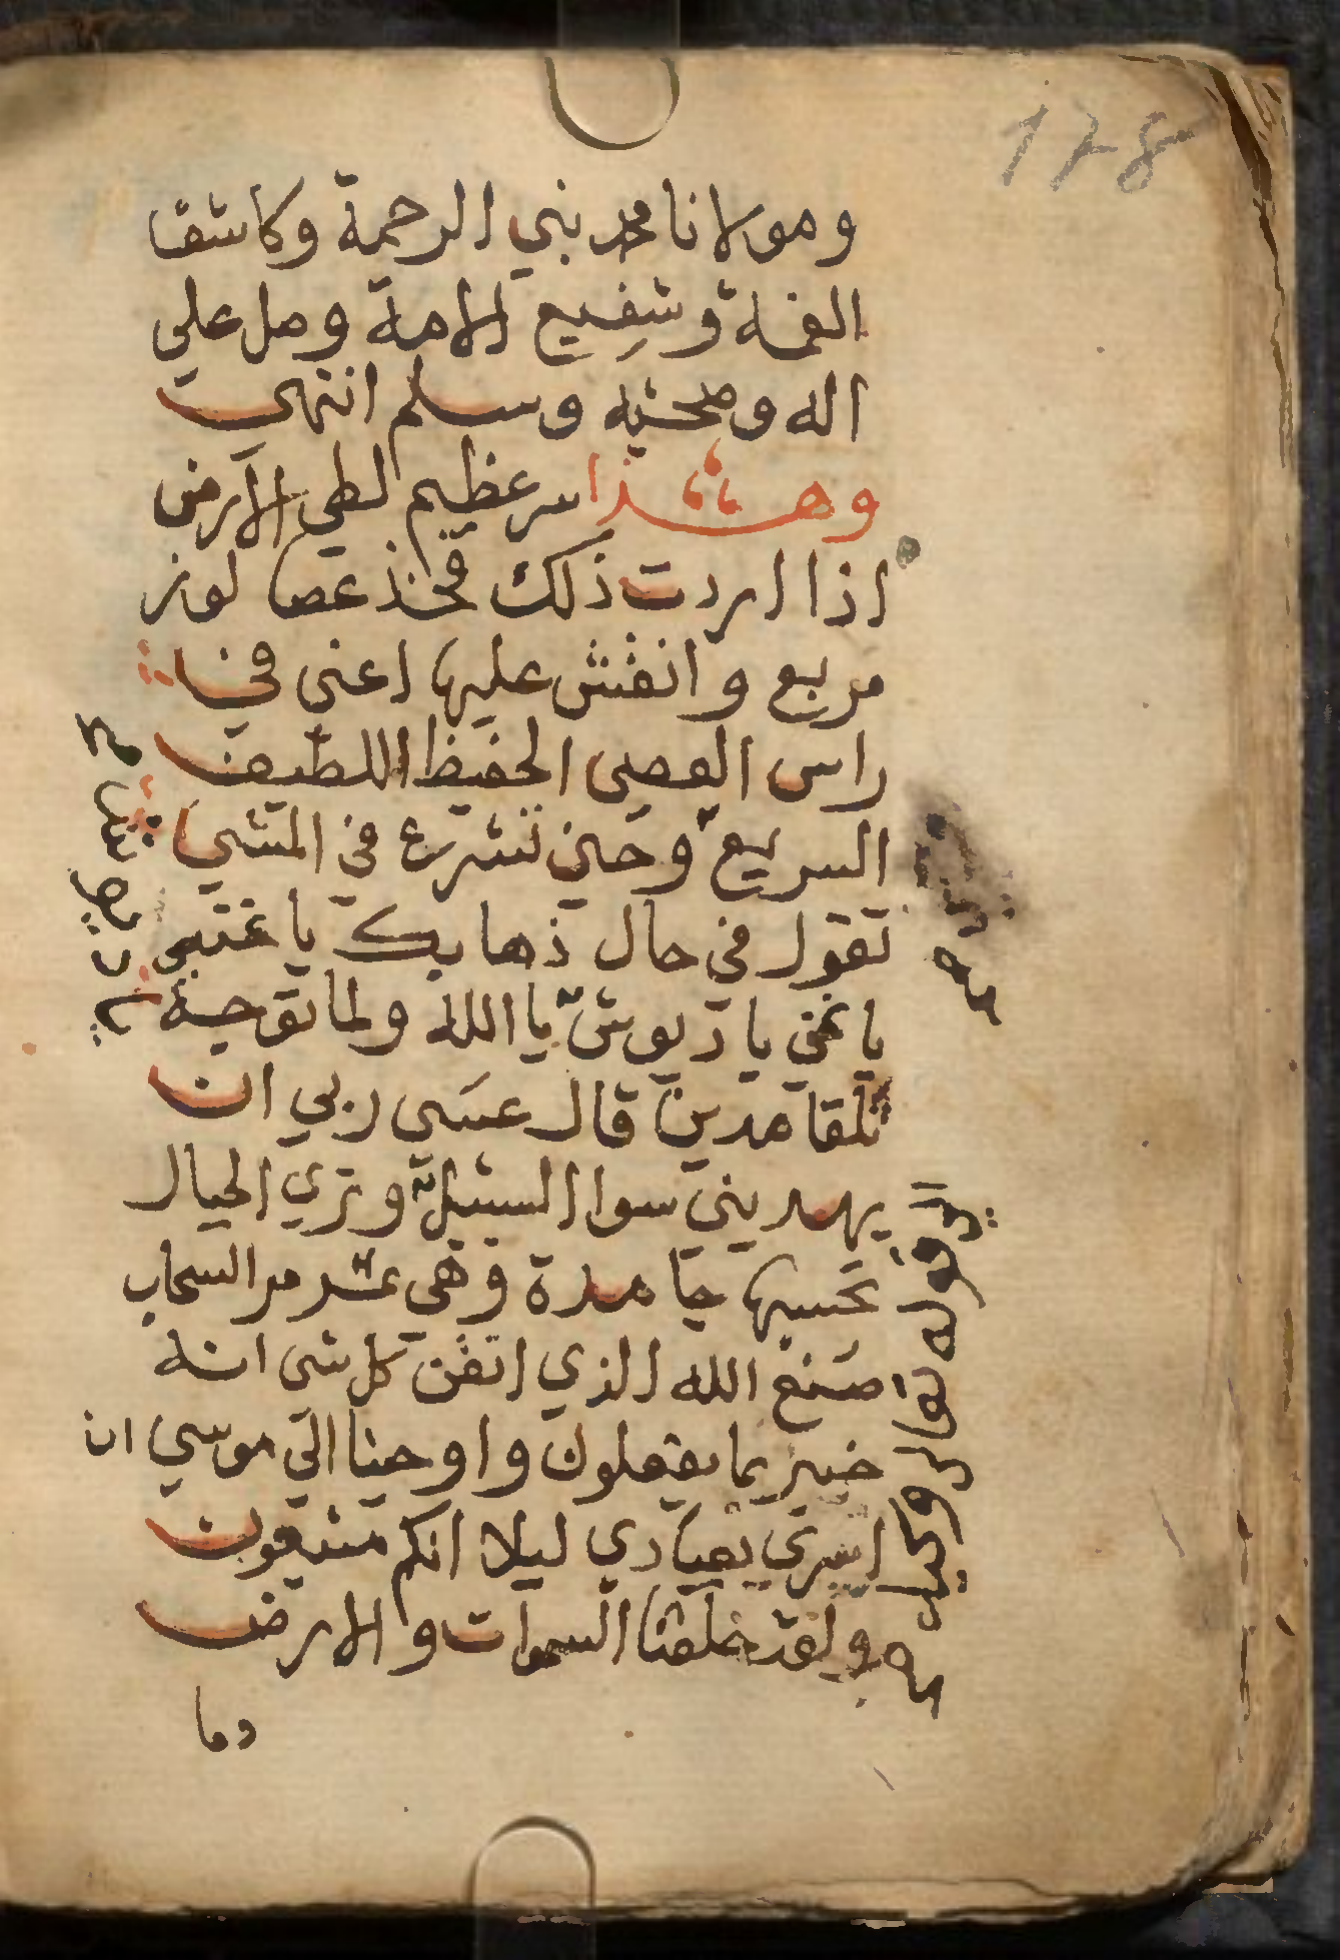 128
ومولانا محمد نبي الرحمة وكاشف
الغمة وشفيع الامة وصل علي
اله وصحبه وسلم انتهى
وهذا سر عظيم لطي الارض
اذا اردت ذلك فخذ عصا لوز
مربع وانقش عليها اعنى في
راس العصى الحفيظ اللطيف
السريع وحين تشرع في المشي
تقول في حال ذهابك يا
يا يا يا الله ولما توجه
تلقا مدين قال عسى ربي ان
يهديني سوا السبيل وتري الجبال
تحسبها جامدة وهي تمر مر السحاب
صنع الله الذي اتقن كل شى انه
خبير بما يفعلون واوحينا الي موسي ان
اسري بعبادي ليلا انكم متبعون
ولقد خلقنا السموات والارض
وما
الي قوله تعالى